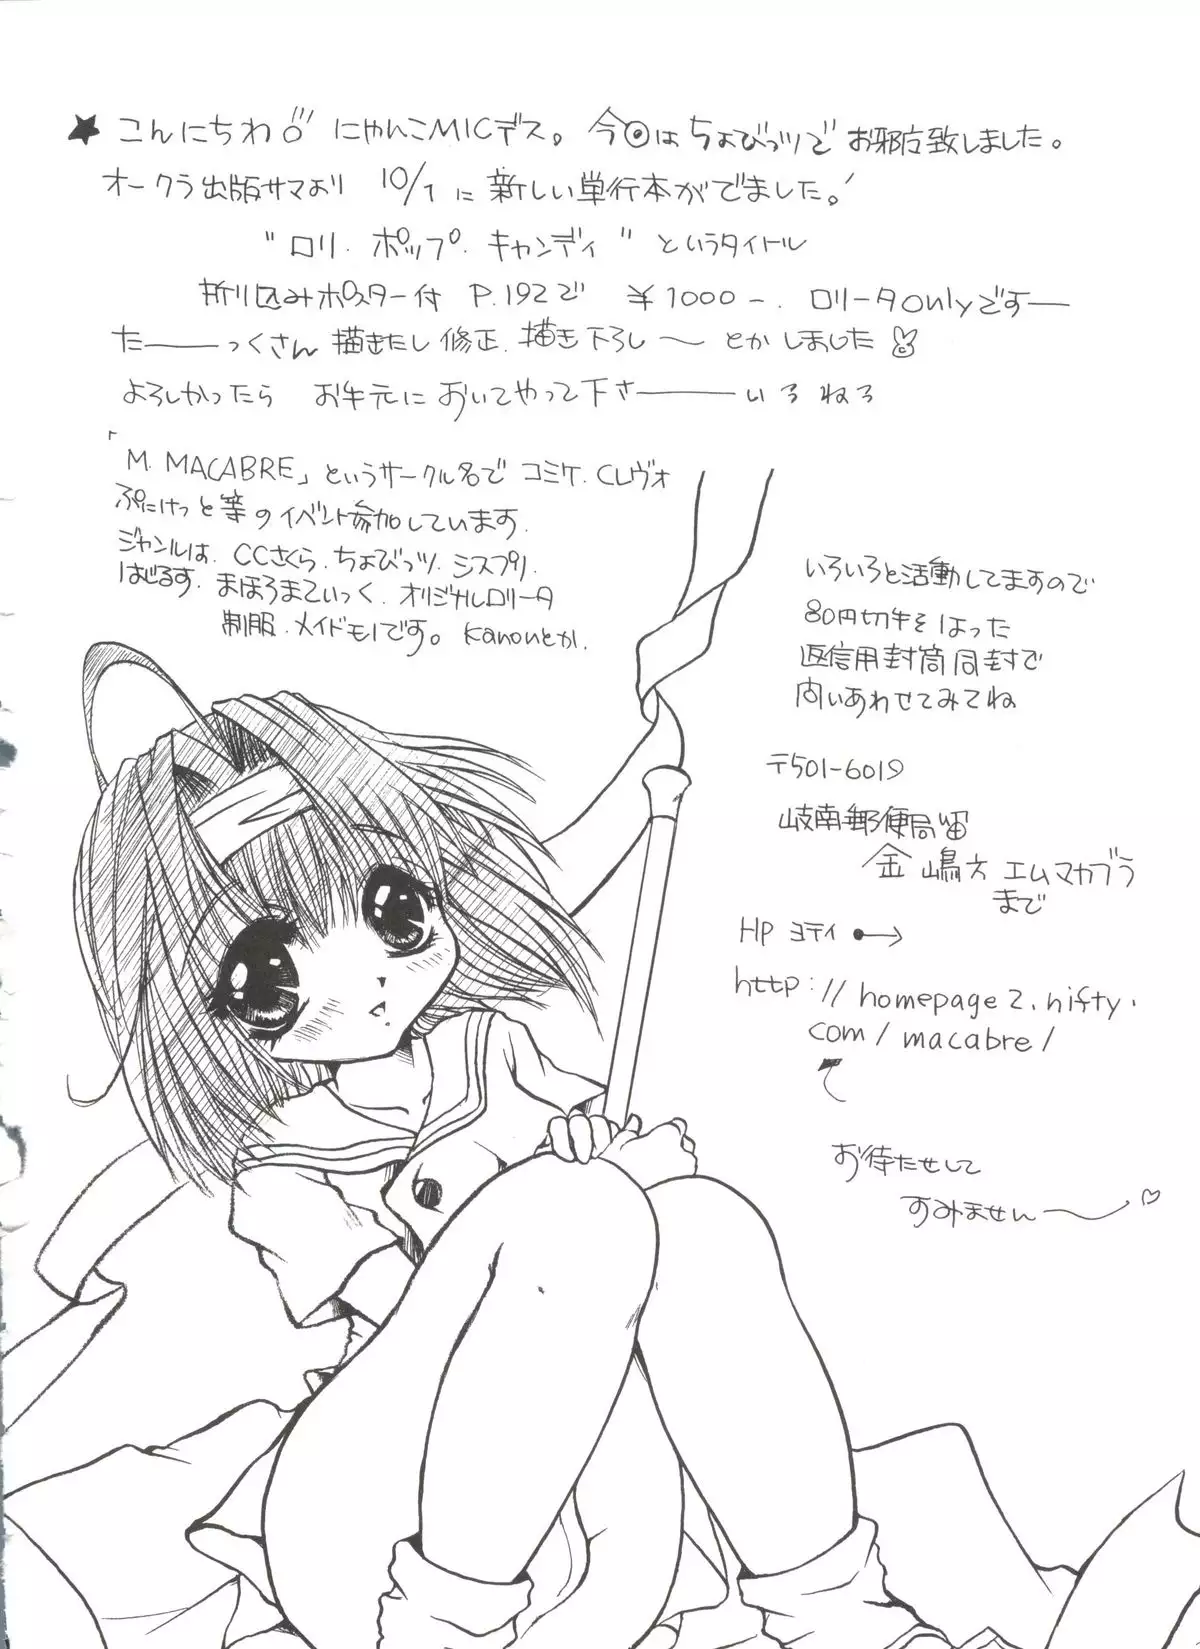 ★こんにちわ♂ にゃんこMICデス。今回はちょびっツでお邪庄致しました。
オークラ出版サマより 10/1に新しい単行本がでました。
"ロリ.ポップ.キャンディ" というタイトル
折り込みポスター付 P.192で ¥1000-. ロリータonlyですー
たーーっくさん 描きたし修正.描き下ろし〜とかしました
よろしかったら お手元においてやって下さーーいろねろ
「M.MACABRE」というサークル名でコミケ.CLヴォ
ぷにけっと等のイベント参加しています.
ジャンルは.CCさくら.ちょびっツ.シスプリ
はじるす.まほろまてぃっく.オリジナルロリータ
制服.メイドモノです。Kanonとか.
いろいろと活動してますので
80円切手をはった
返信用封筒同封で
問いあわせてみてね
〒501-6019
岐南郵便局留
金嶋方 エムマカブラ
まで
HP ヨティ ●→
http://homepage2.nifty.
com/macabre/
お待たせして
すみませんー♡